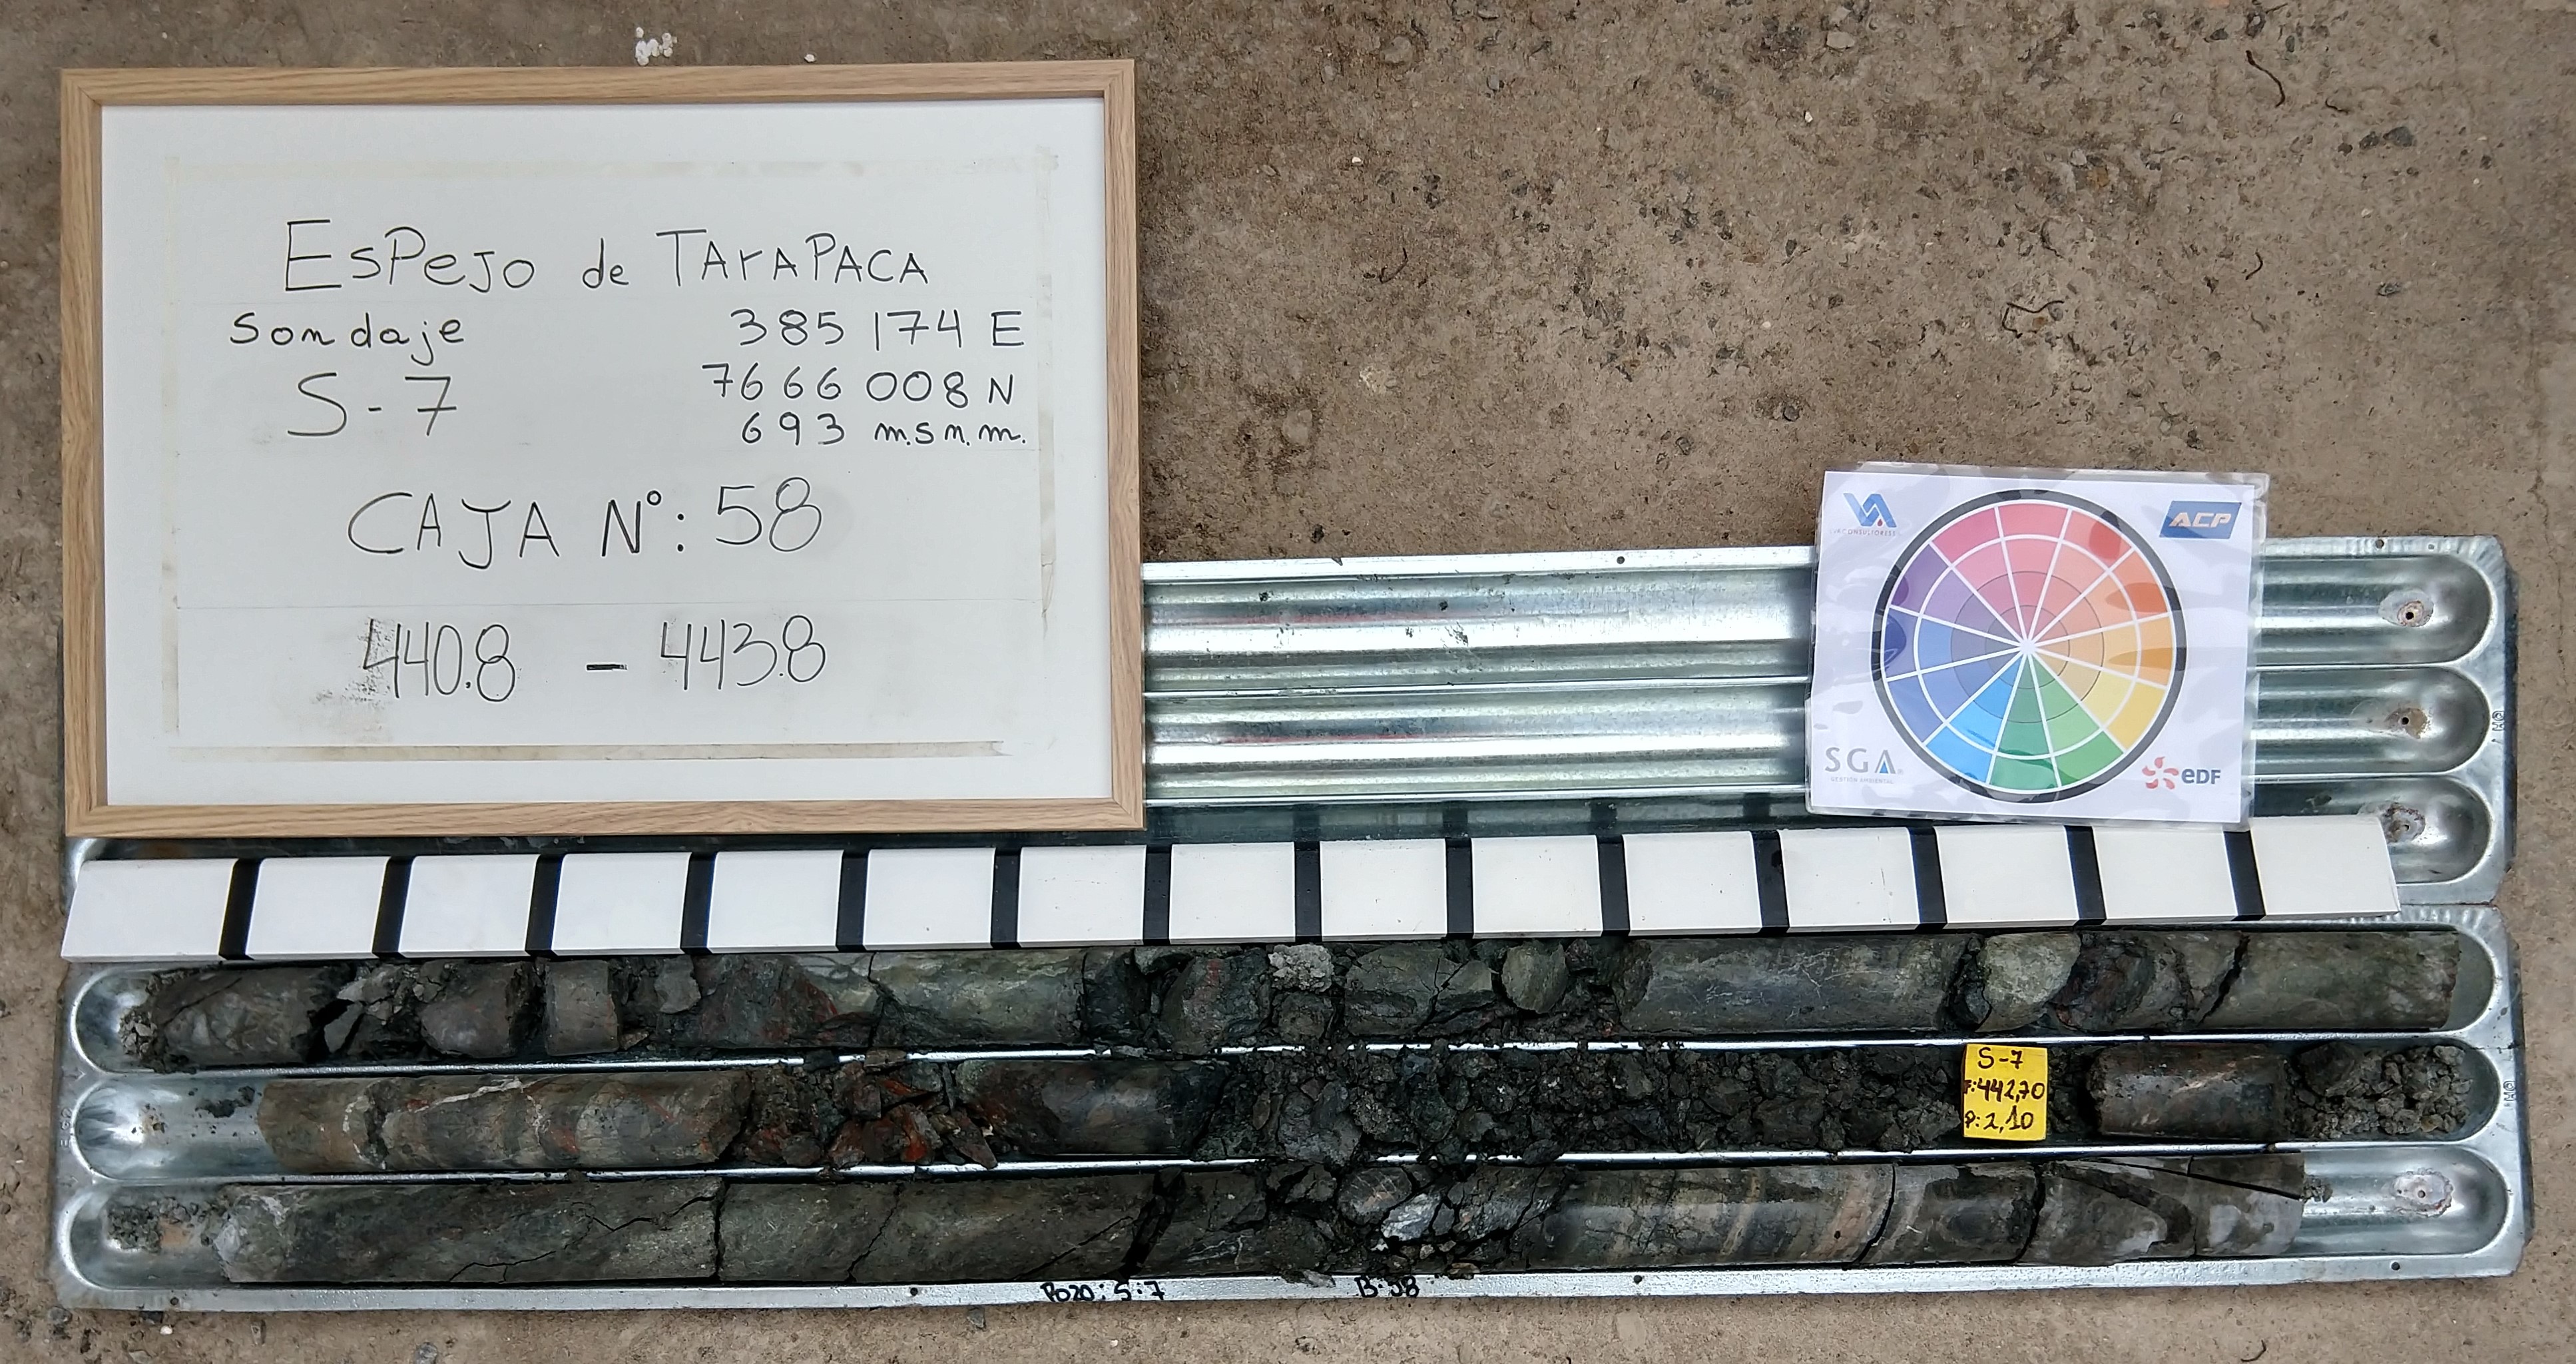 EsPeJO de TArAPACA
Sondaje
S-7
385 174 E
7666 008 N
693 m.s.n.m.
CAJA N°: 58
440.8 - 443.8
VA CONSULTORES
ACP
SGA
GESTIÓN AMBIENTAL
eDF
S-7
F:442,70
P:2,10
Pozo: S:7 B:58